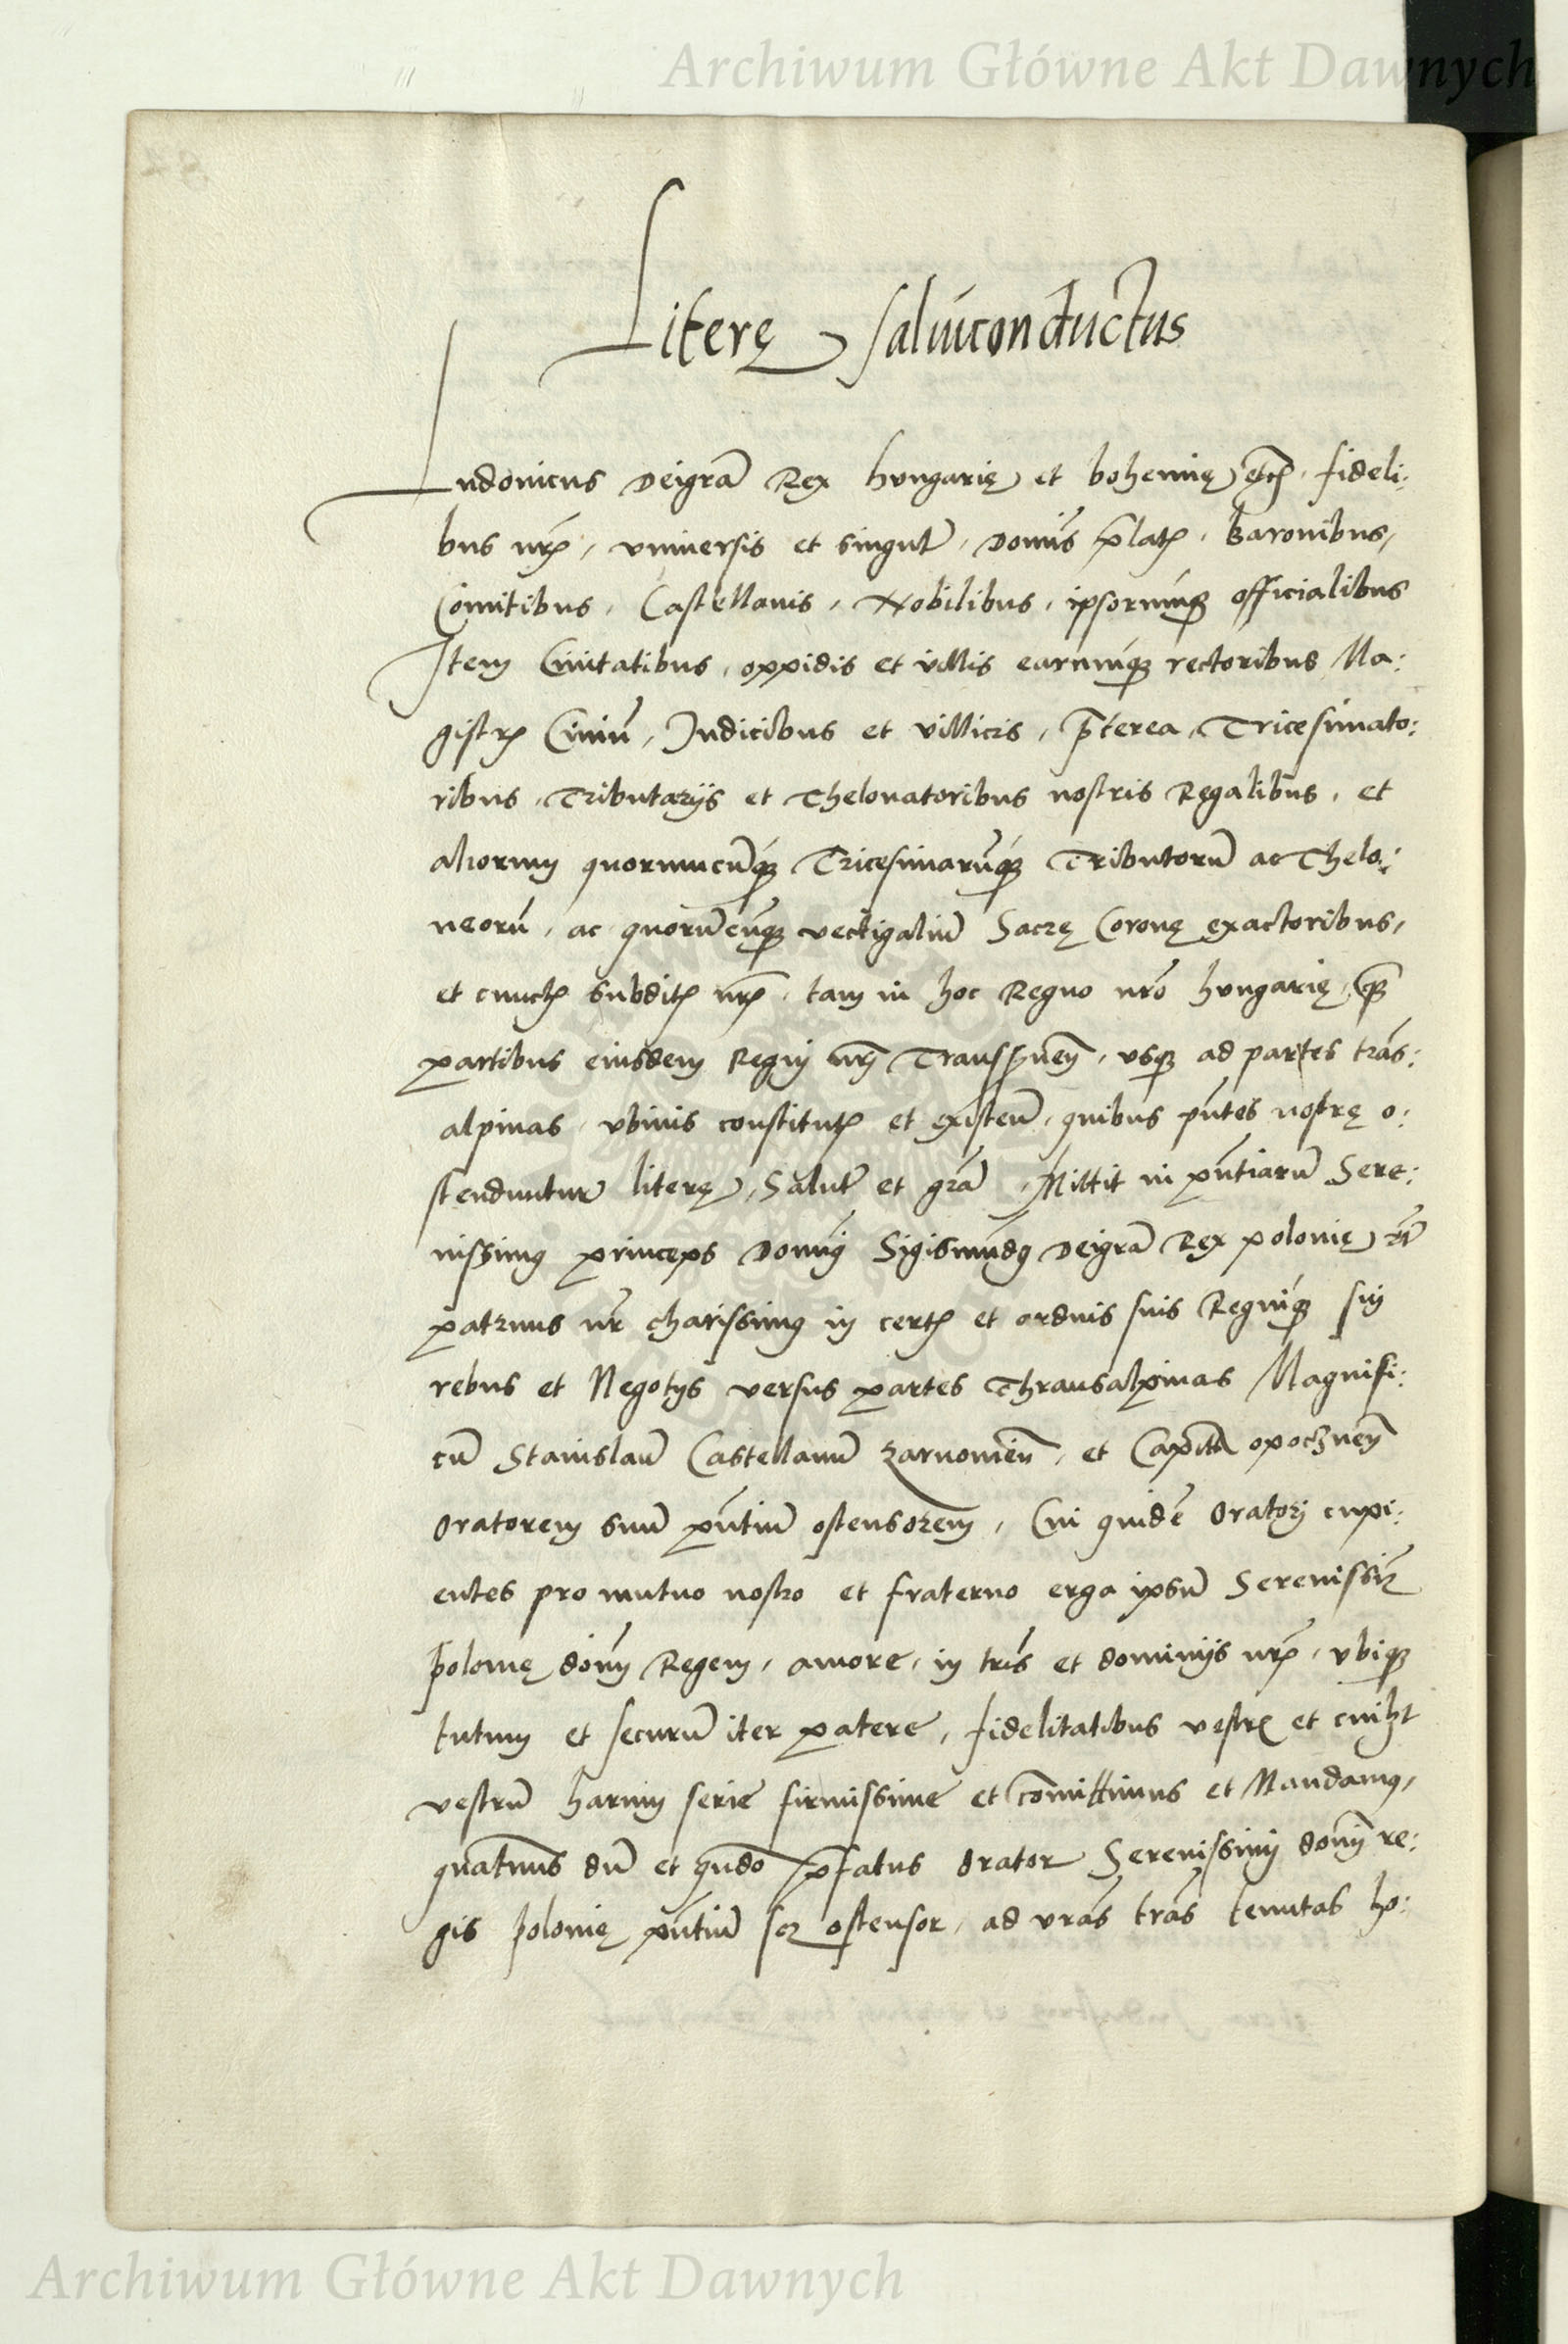 Archiwum Główne Akt Dawnych
Literę salviconductus
Ludovicus Deigrā Rex hungarię et bohemię etc̄. fideli:
bus nrꝭ, vniversis et singul̄, Domīs p̄latꝭ, Baronibus,
Comitibus, Castellanis, Nobilibus, ipsorumqꝫ officialibus
Item Civitatibus, oppidis et villis earumqꝫ rectoribus Ma:
gistrꝭ Civiū, Iudicibus et villicis, p̄terea, Tricesimato:
ribus, Tributarijs et Thelonatoribus nostris Regalibus, et
aliorum quorumcūqꝫ Tricesimarūqꝫ Tributorū ac Thelo:
neorū, ac quorūcūqꝫ vectigaliū Sacrę Coronę exactoribus,
et cunctꝭ subditꝭ nrꝭ, tam in hoc Regno nrō hungarię, qꝫ
partibus eiusdem Regni nrī Transsvneñ, vsqꝫ ad partes trās:
alpinas, vbivis constitutꝭ et existeñ, quibus pn̄tes nostrę o:
stenduntur literę, Salutē et grā. Mittit in pn̄tiarū Sere:
nissimꝰ princeps Domīꝰ Sigismūdꝰ Deigrā Rex polonię etc̄
patruus nr̄ charissimꝰ in certꝭ et arduis suis Regniqꝫ sui
rebus et Negotijs versus partes Thransalpinas Magnifi:
cū Stanislaū Castellanū zarnovieñ, et Capitā opoczneñ
Oratorem suū pn̄tiū ostensorem, Cui quidē Oratori cupi:
entes pro mutuo nostro et fraterno erga ipsū Serenissiꝫ
polonię dōm Regem, amore, in trīs et dominijs nrꝭ, vbiqꝫ
tutum et securū iter patere, fidelitatibus vestrꝭ et cuilꝫt
vestrū harum serie firmissime et comittimus et Mandamꝰ,
quatenus dū et quādo p̄fatus Orator Serenissimi dōni re:
gis polonię pn̄tiū scꝫ ostensor, ad vrās trās tenutas ho:
Archiwum Główne Akt Dawnych